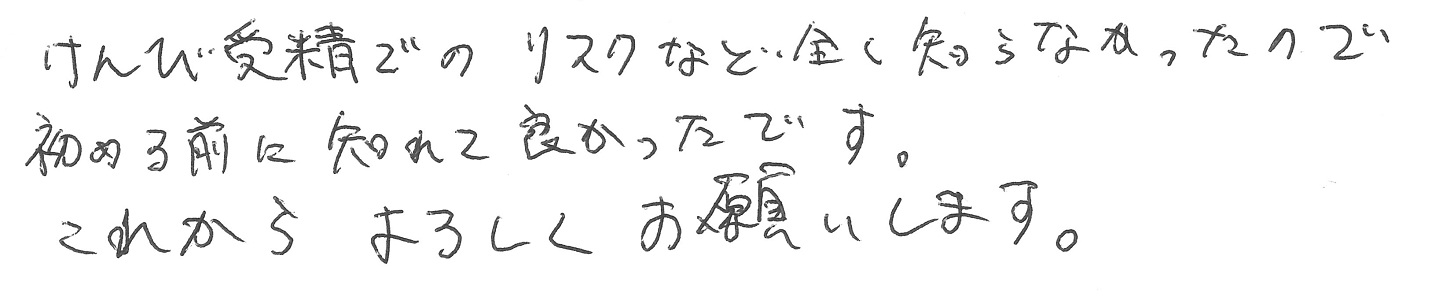 けんび受精でのリスクなど全く知らなかったので
初める前に知れて良かったです。
これからよろしくお願いします。